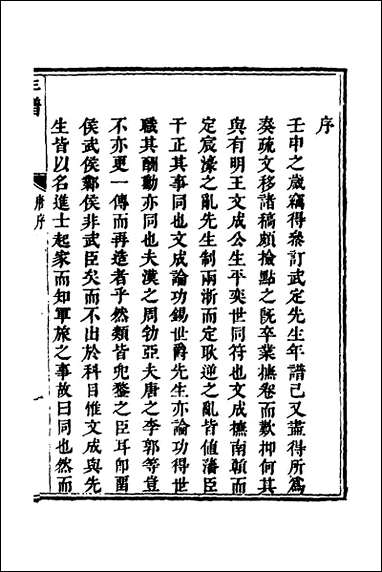 序
壬申之歲竊得參訂武定先生年譜已又盡得所為
奏疏文移諸稿頗撿點之旣卒業撫卷而歎抑何其
與有明王文成公生平奕世同符也文成撫南贑而
定宸濠之亂先生制兩浙而定耿逆之亂皆值藩臣
干正其事同也文成論功錫世爵先生亦論功得世
職其酬勳亦同也夫漢之周勃亞夫唐之李郭等豈
不亦更一傳而再造者乎然類皆兜鍪之臣耳卽畱
侯武侯鄴侯非武臣矣而不出於科目惟文成與先
生皆以名進士起家而知軍旅之事故曰同也然而
年譜
唐序
一